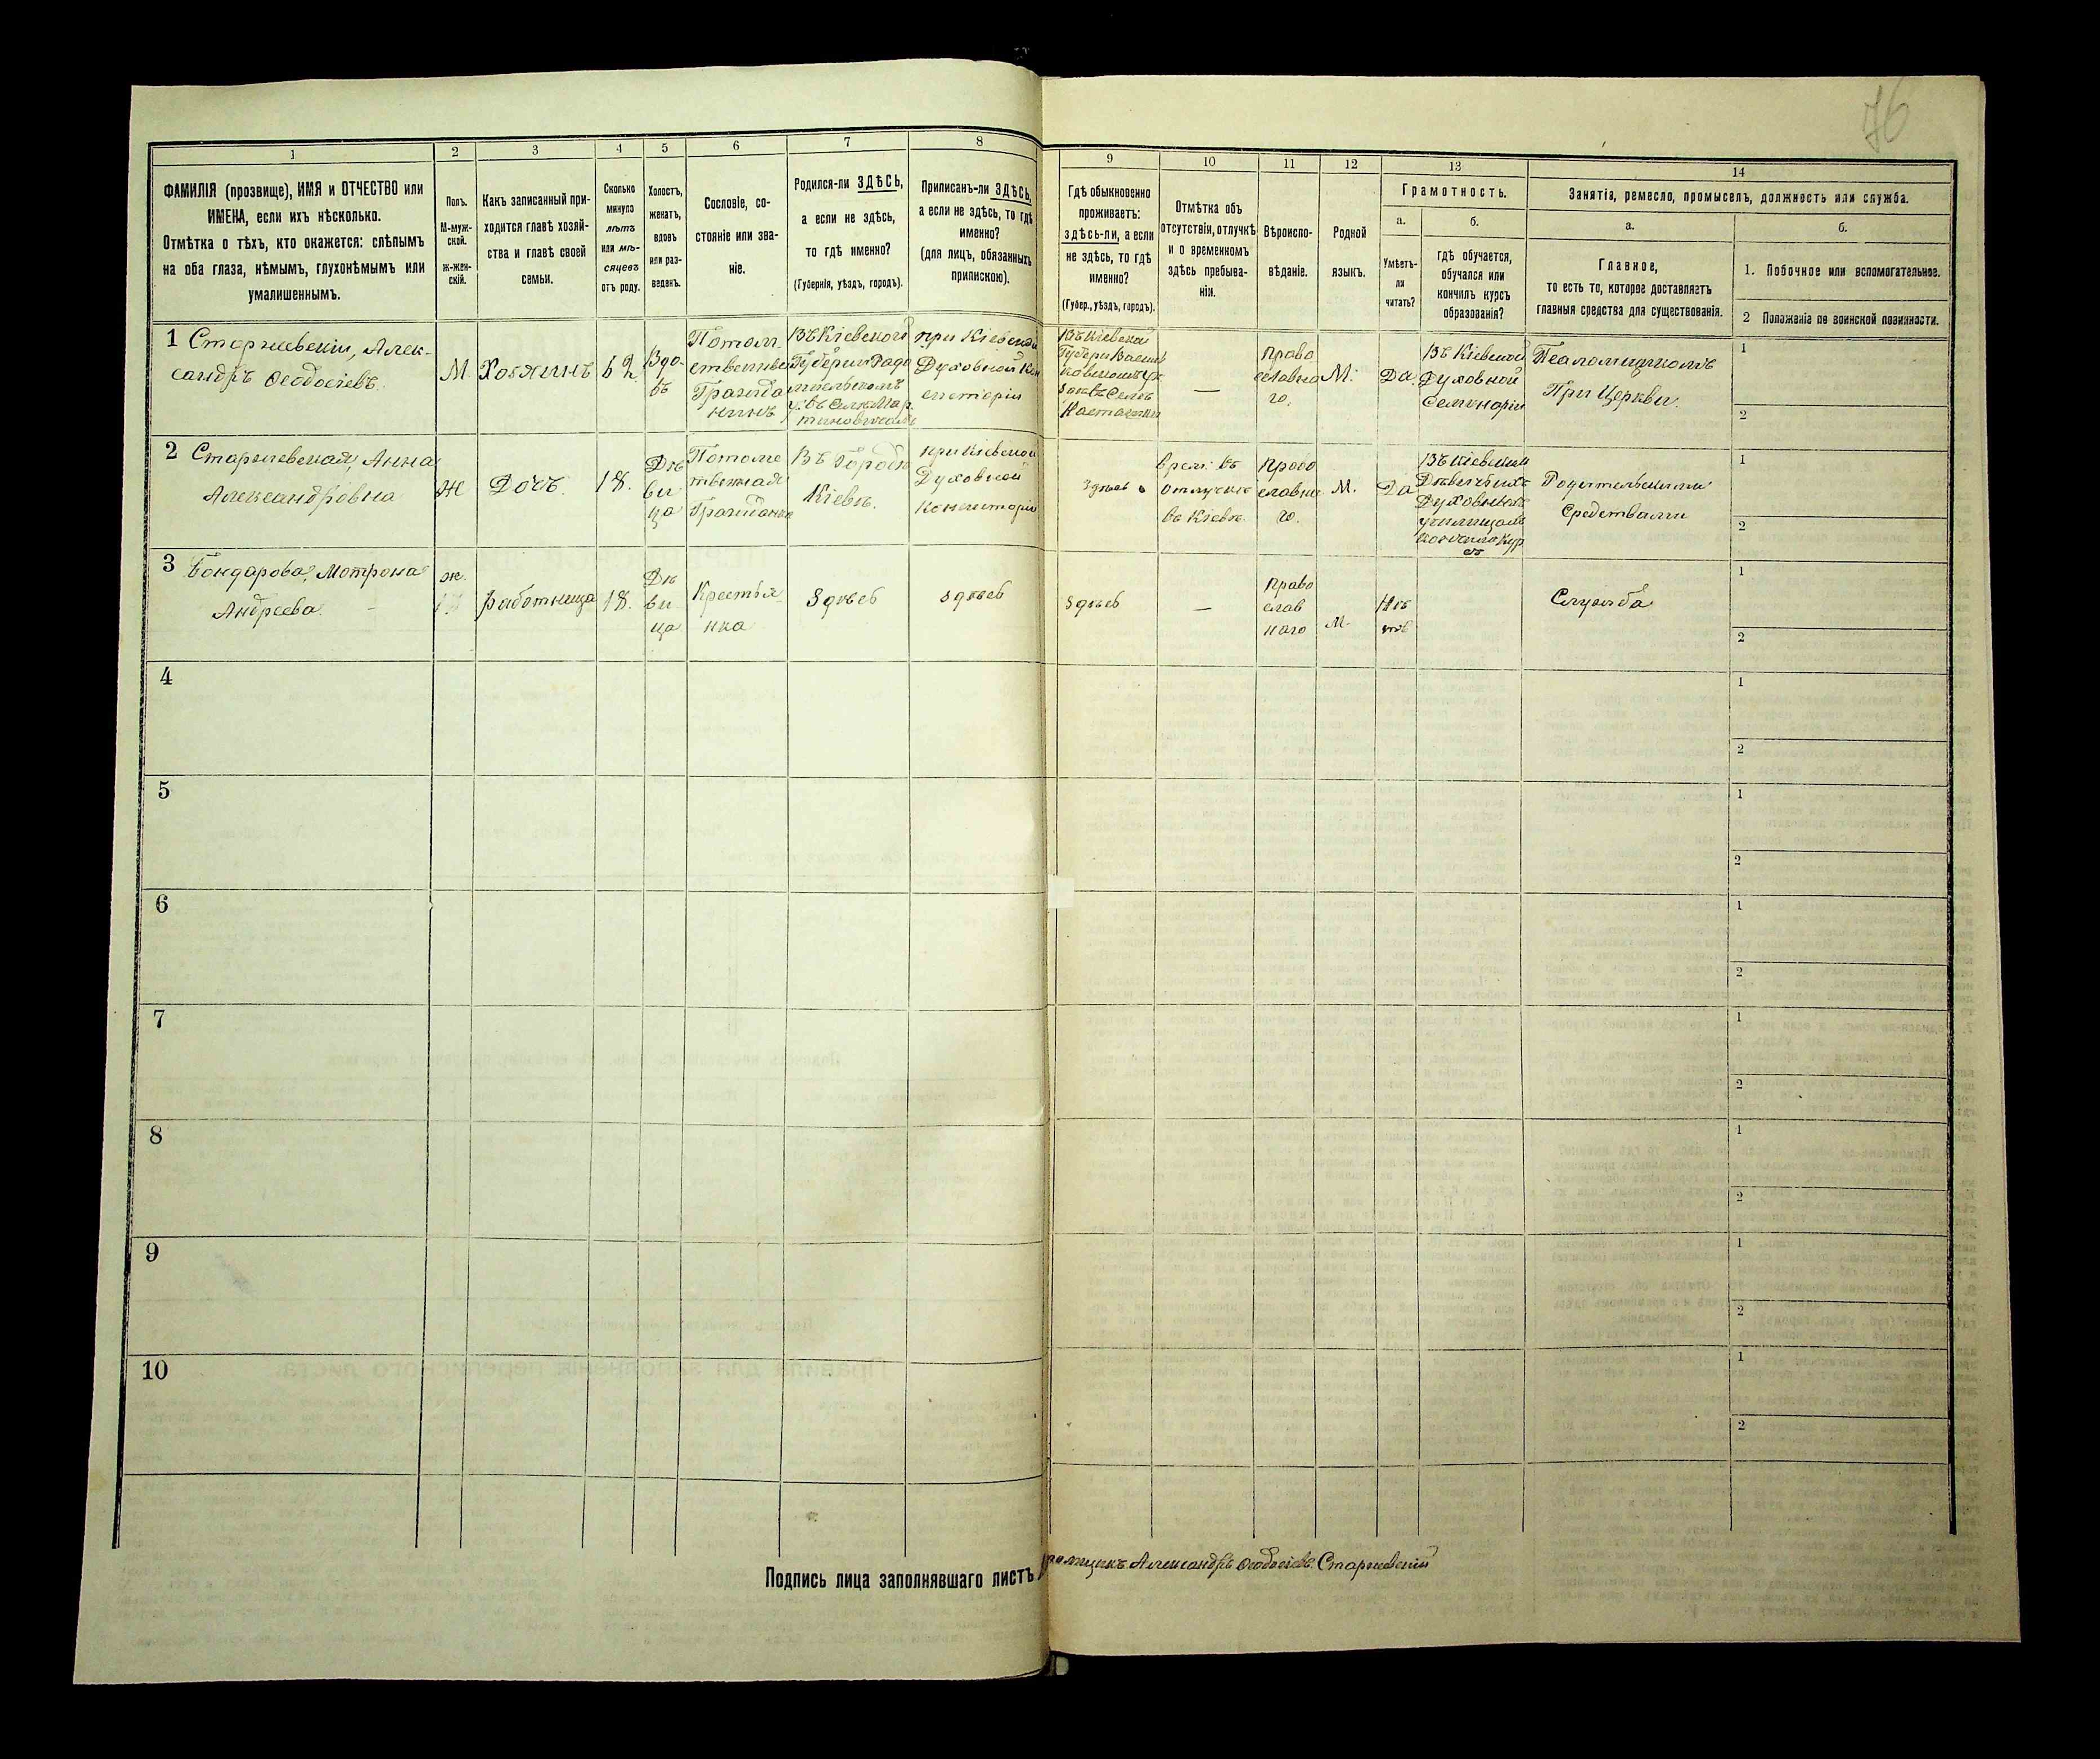 76
1
2
3
4
5
6
7
8
9
10
11
12
13
14
ФАМИЛІЯ (прозвище), ИМЯ и ОТЧЕСТВО или
ИМЕНА, если ихъ нѣсколько.
Отмѣтка о тѣхъ, кто окажется: слѣпымъ
на оба глаза, нѣмымъ, глухонѣмымъ или
умалишеннымъ.
Полъ.
М-муж-
ской.
Ж-жен-
скій.
Какъ записанный при-
ходится главѣ хозяй-
ства и главѣ своей
семьи.
Сколько
минуло
лѣтъ
или мѣ-
сяцевъ
отъ роду.
Холостъ,
женатъ,
вдовъ
или раз-
веденъ.
Сословіе, со-
стояніе или зва-
ніе.
Родился-ли ЗДѢСЬ,
а если не здѣсь,
то гдѣ именно?
(Губернія, уѣздъ, городъ).
Приписанъ-ли ЗДѢСЬ,
а если не здѣсь, то гдѣ
именно?
(для лицъ, обязанныхъ
припискою).
Гдѣ обыкновенно
проживаетъ:
здѣсь-ли, а если
не здѣсь, то гдѣ
именно?
(Губер., уѣздъ, городъ).
Отмѣтка объ
отсутствіи, отлучкѣ
и о временномъ
здѣсь пребыва-
ніи.
Вѣроиспо-
вѣданіе.
Родной
языкъ.
Грамотность.
а.
Умѣетъ-
ли
читать?
б.
гдѣ обучается,
обучался или
кончилъ курсъ
образованія?
Занятія, ремесло, промыселъ, должность или служба.
а.
Главное,
то есть то, которое доставляетъ
главныя средства для существованія.
б.
1. Побочное или вспомогательное.
2 Положеніе по воинской повинности.
1
Старжевскій, Алек-
сандръ Ѳеодосіевъ.
М.
Хозяинъ
62
Вдо-
въ
Потом-
ственный
Гражда
нинъ
Въ Кіевской
Губерніи Радо
мысльскомъ
у. въ селѣ Мар
тиновичахъ
при Кіевской
Духовной Кон
систоріи
Въ Кіевской
Губерн Васил
ковскомъ уѣ
здѣ въ Селѣ
—
Право
славна
го.
М.
Да
Въ Кіевской
Духовной
Семинаріи
Псаломщикомъ
При Церкви.
1
2
2
Старжевская, Анна
Александровна
Ж
Дочъ.
18.
Дѣ
ви
ца
Потомс
твенная
Гражданка
Въ Городѣ
Кіевѣ.
при Кіевской
Духовной
Консисторіи
Здѣсь
Врем: въ
отлучкѣ
въ Кіевѣ.
Право
славна
го.
М.
Да
Въ Кіевскомъ
Дѣвичьихъ
Духовныхъ
училищахъ
кончила Кур
съ
Родительскими
Средствами
1
2
3
Бондарова, Мотрона
Андреева.
ж.
работница
18.
Дѣ
ви
ца
Крестья-
нка
Здѣсь
здѣсь
здѣсь
—
Право
слав
наго
М.
Нѣ
тъ
Служба
1
2
4
1
2
5
1
2
6
1
2
7
1
2
8
1
2
9
1
2
10
1
2
Подпись лица заполнявшаго листъ
Александръ Ѳеодосіевъ Старжевскій